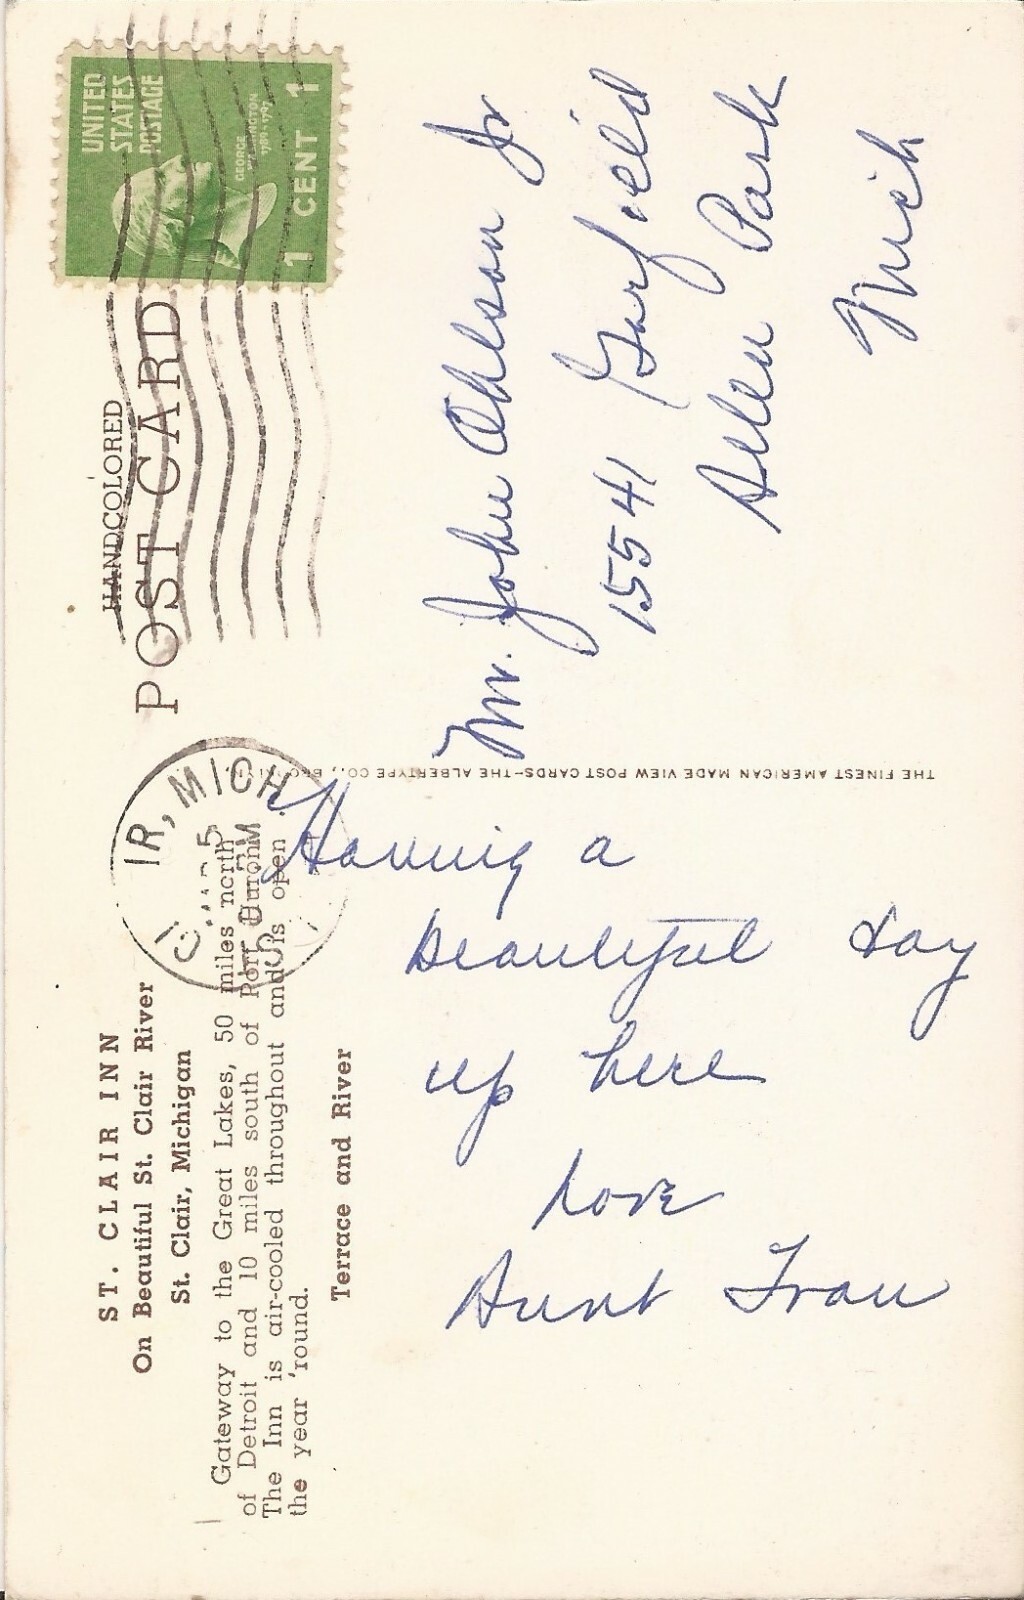 ST. CLAIR INN
On Beautiful St. Clair River
St. Clair, Michigan
Gateway to the Great Lakes, 50 miles north
of Detroit and 10 miles south of Port Huron.
The Inn is air-cooled throughout and is open
the year 'round.
Terrace and River
HANDCOLORED
POST CARD
UNITED
STATES
POSTAGE
GEORGE
WASHINGTON
1789-1797
1 CENT 1
IR, MICH
5
PM
THE FINEST AMERICAN MADE VIEW POST CARDS-THE ALBERTYPE CO.,
Having a
beautiful day
up here
Love
Aunt Fran
Mr. John Ohlson Jr
15541 Garfield
Allen Park
Mich